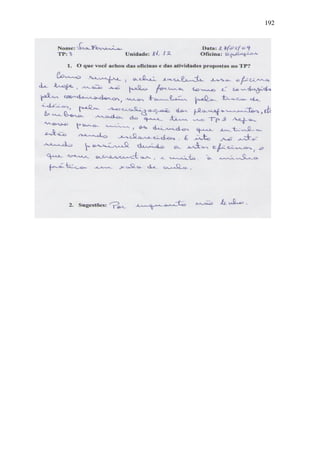 192
Nome: Ferreira Data: 28/05/09
TP: 3 Unidade: 11, 12 Oficina:
1. O que você achou das oficinas e das atividades propostas no TP?
Como sempre, achei excelente essa oficina
de hoje, não só pela forma como é conduzida
pela coordenadora, mas também pela troca de
idéias, pela socialização dos planejamentos,
embora nada do que tem no TP3 seja
novo para mim, as dúvidas que eu tinha
estão sendo esclarecidas. E isto só está
sendo possível devido a estas oficinas, o
que vem acrescentar, e muito, à minha
prática em sala de aula.
2. Sugestões: Por enquanto não tenho.